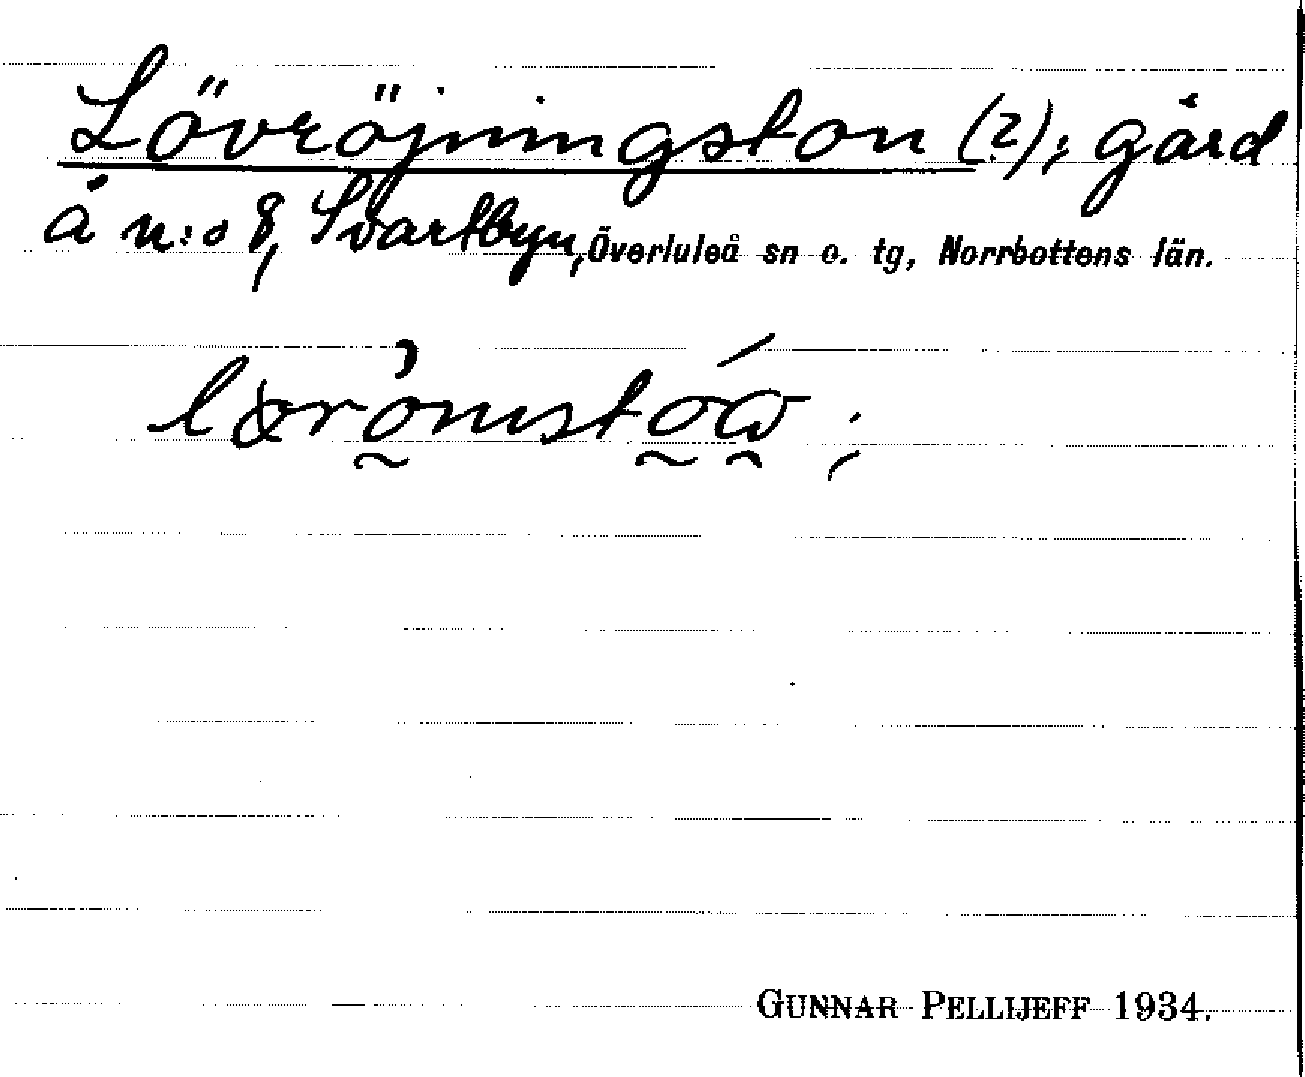 Lövröjningston (?); gård
å n:o 8, Svartbyn, Överluleå sn o. tg, Norrbottens län.
GUNNAR PELLIJEFF 1934.